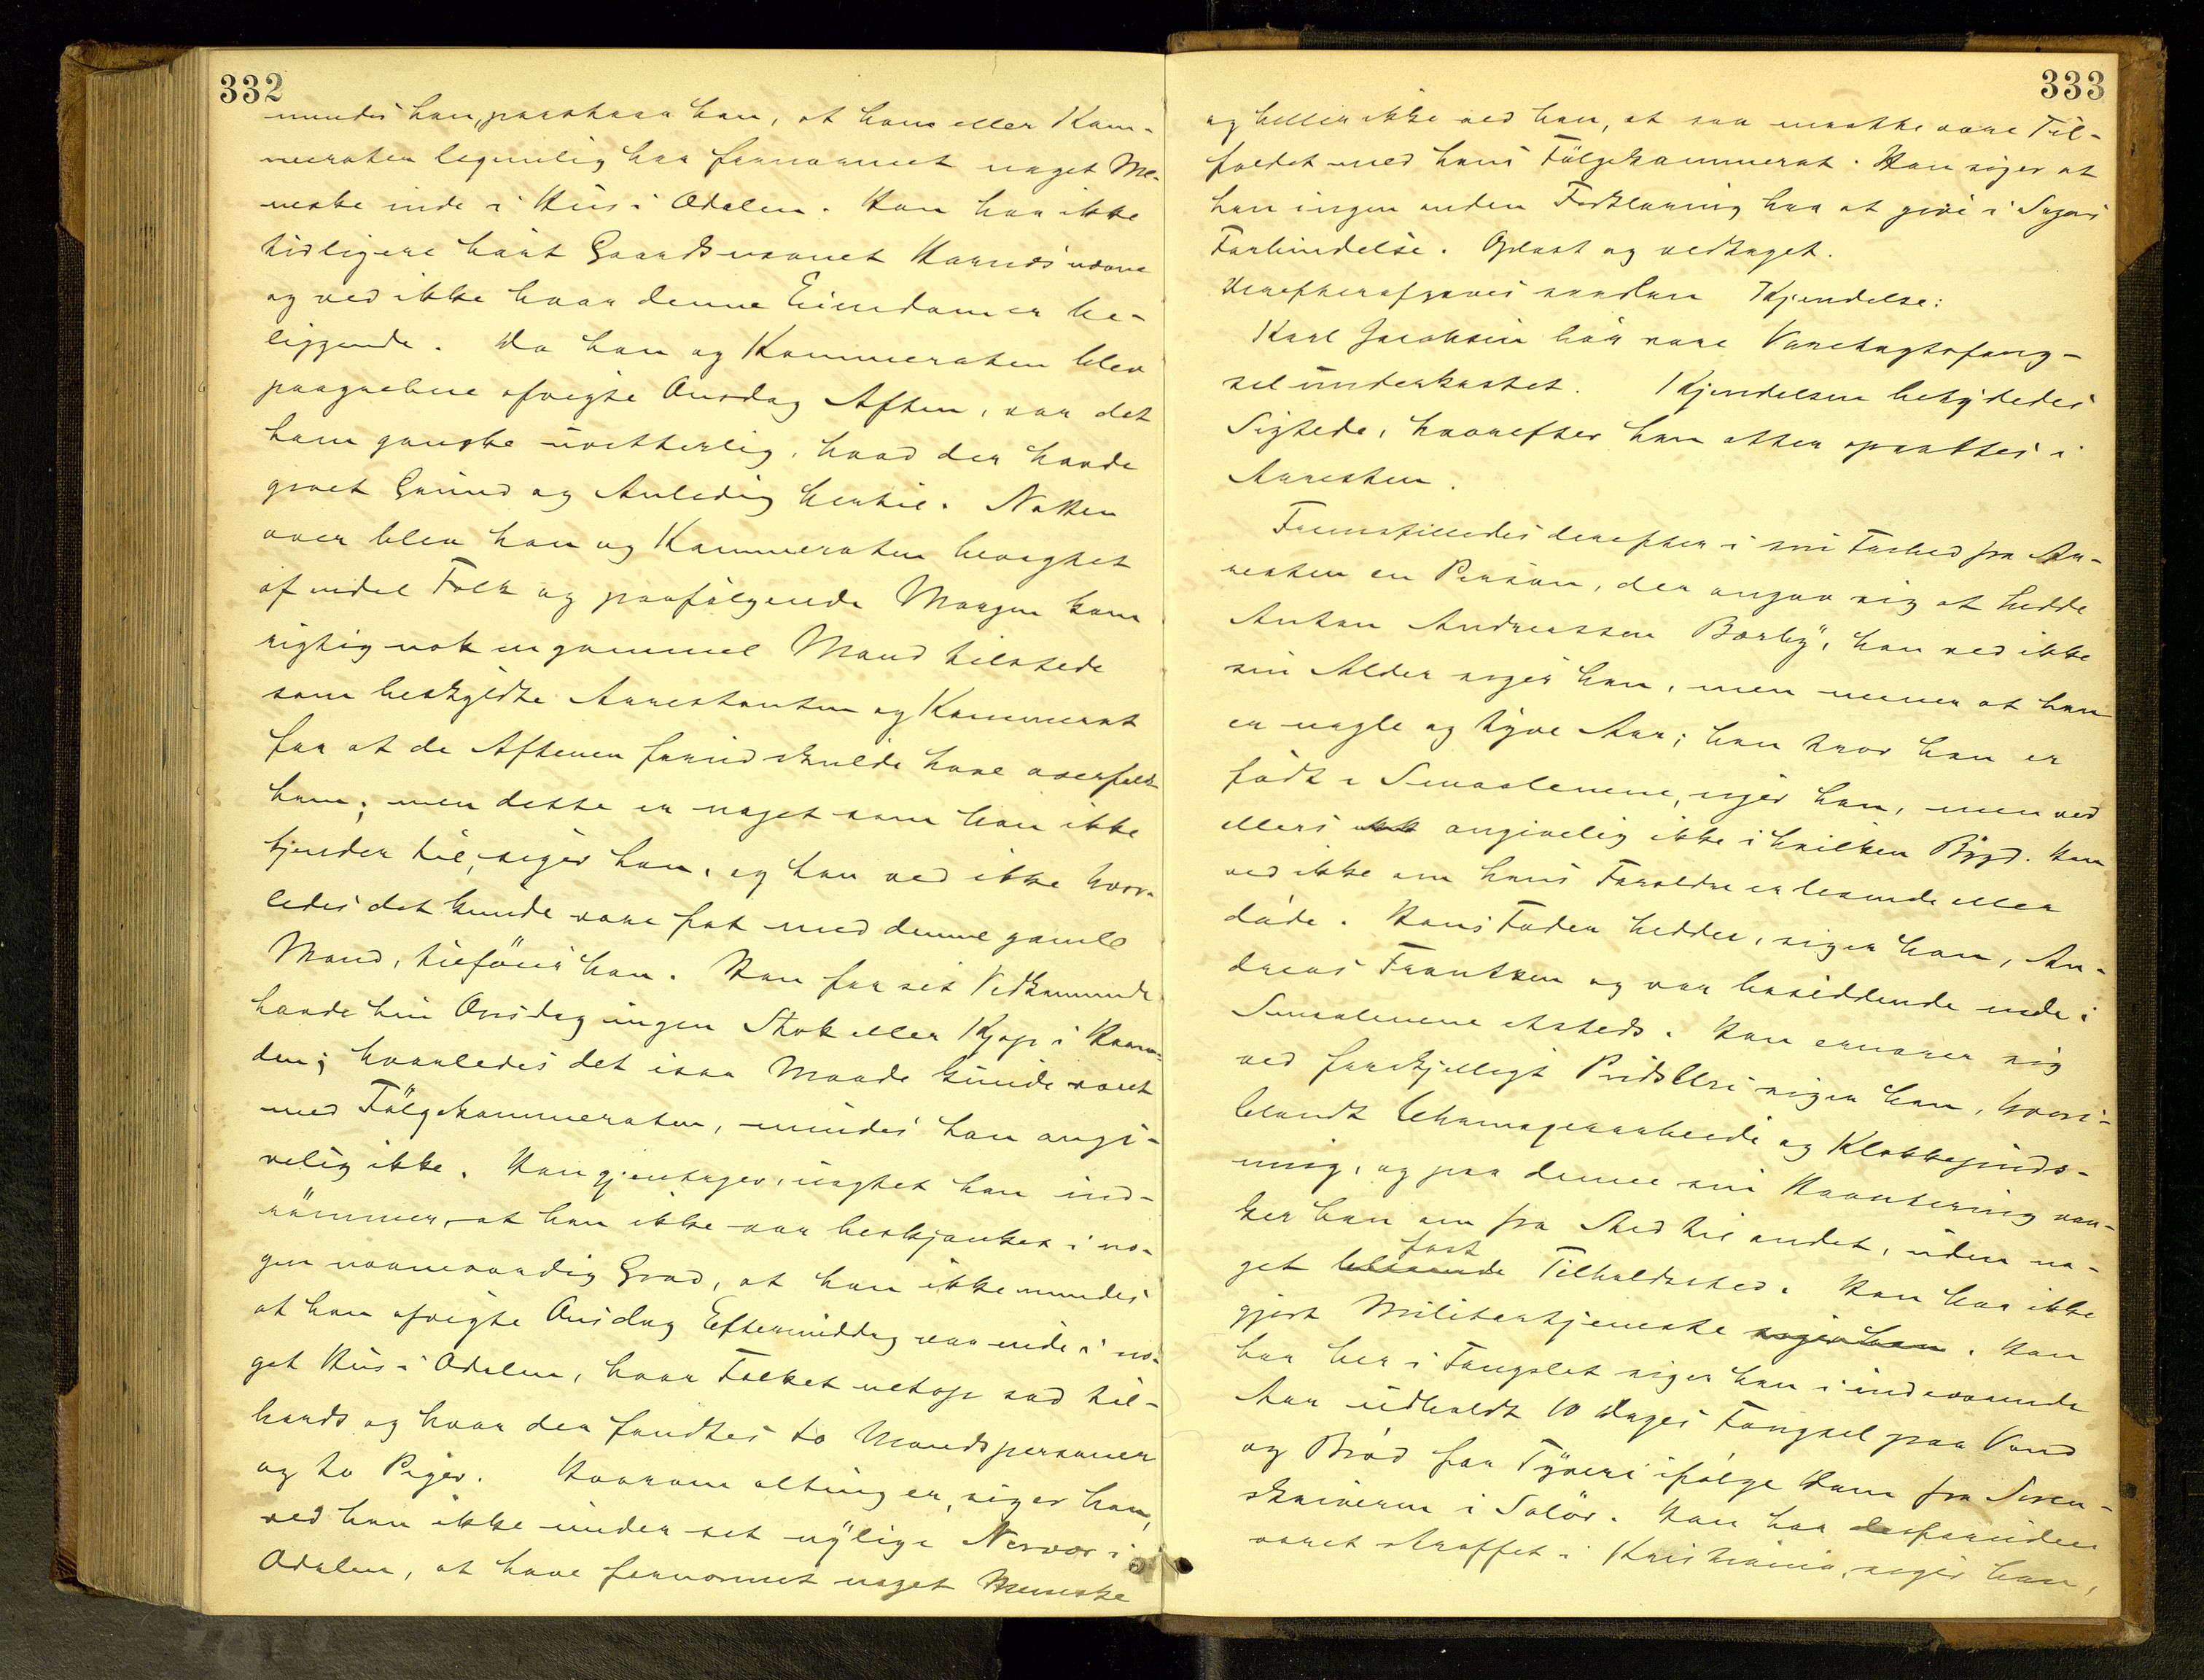 332
mindes han, paastaar han, at hans eller Kam-
meraten legemlig har fornærmet noget Me-
neske inde i Hus i Odalen. Han har ikke
tidligere hört Gaardsnavnet Harnæs nævne
og ved ikke hvor denne Eiendom er be-
liggende. Da han og Kammeraten blev
paagrebne afvigte Onsdag Aften, var det
ham ganske uvitterlig, hvad der havde
givet Grund og Anledning hertil. Natten
over blev han og Kammeraten bevogtet
af endel Folk og paafølgende Morgen kom
rigtig nok en gammel Mand tilstede
som beskyldte Arrestanten og Kammerat
for at de Aftenen forud skulde have overfaldt
ham; men dette er noget som han ikke
kjender til, siger han, og han ved ikke hvor-
ledes det kunde være fat med denne gamle
Mand, tilföier han. Han for sit Vedkommende
havde hin Onsdag ingen Stok eller Kjep i Haan-
den; hvorledes det isaa Maade kunde været
med Fölgekammeraten, mindes han angi-
velig ikke. Han gjentager, uagtet han ind-
rømmer, at han ikke var beskjænket i no-
gen nævneværdig Grad, at han ikke mindes
at han afvigte Onsdag Eftermiddag var inde i no-
get Hus i Odalen, hvor Folket netop sad til-
bords og hvor der fandtes to Mandspersoner
og to Piger. Hvorom alting er, siger han,
ved han ikke under sit nylige Nærvær i
Odalen, at have fornærmet noget Menneske
333
og heller ikke ved han, at saa maatte være Til-
fældet med hans Fölgekammerat. Han siger at
han ingen anden Forklaring har at give i Sagens
Forbindelse. Oplæst og vedtaget.
Derefter afgaves saadan Kjendelse:
Karl Jacobsen bör være Varetægtsfæng-
sel underkastet. Kjendelsen betydedes
Sigtede, hvorefter han atter opsattes i
Arresten.
Fremstilledes derefter i sin Frihed fra Ar-
resten en Person, der angav sig at hedde
Anton Andreassen Borby, han ved ikke
sin Alder siger han, men mener at han
er nogle og tyve Aar; han tror han er
født i Smaalenene, siger han, men ved
ellers angivelig ikke i hvilken Bygd. Han
ved ikke om hans Forældre er levende eller
døde. Hans Fader hedder, siger han, An-
dreas Frantsen og var bosiddende inde i
Smaalenene etsteds. Han ernærer sig
ved forskjelligt Pusleri siger han, hvori-
blandt Uhrmagerarbeide og Klokkepuds-
ning, og paa denne sin Haantering van-
ker han om fra Sted til andet, uden no-
get fast Tilholdssted. Han har ikke
gjort Militærtjeneste siger han. Han
har her i Fængslet siger han i indeværende
Aar udholdt 10 Dages Fængsel paa Vand
og Bröd for Tyveri ifölge Dom fra Soren-
skriveren i Solör. Han har desforuden
været straffet i Kristiania, siger han,